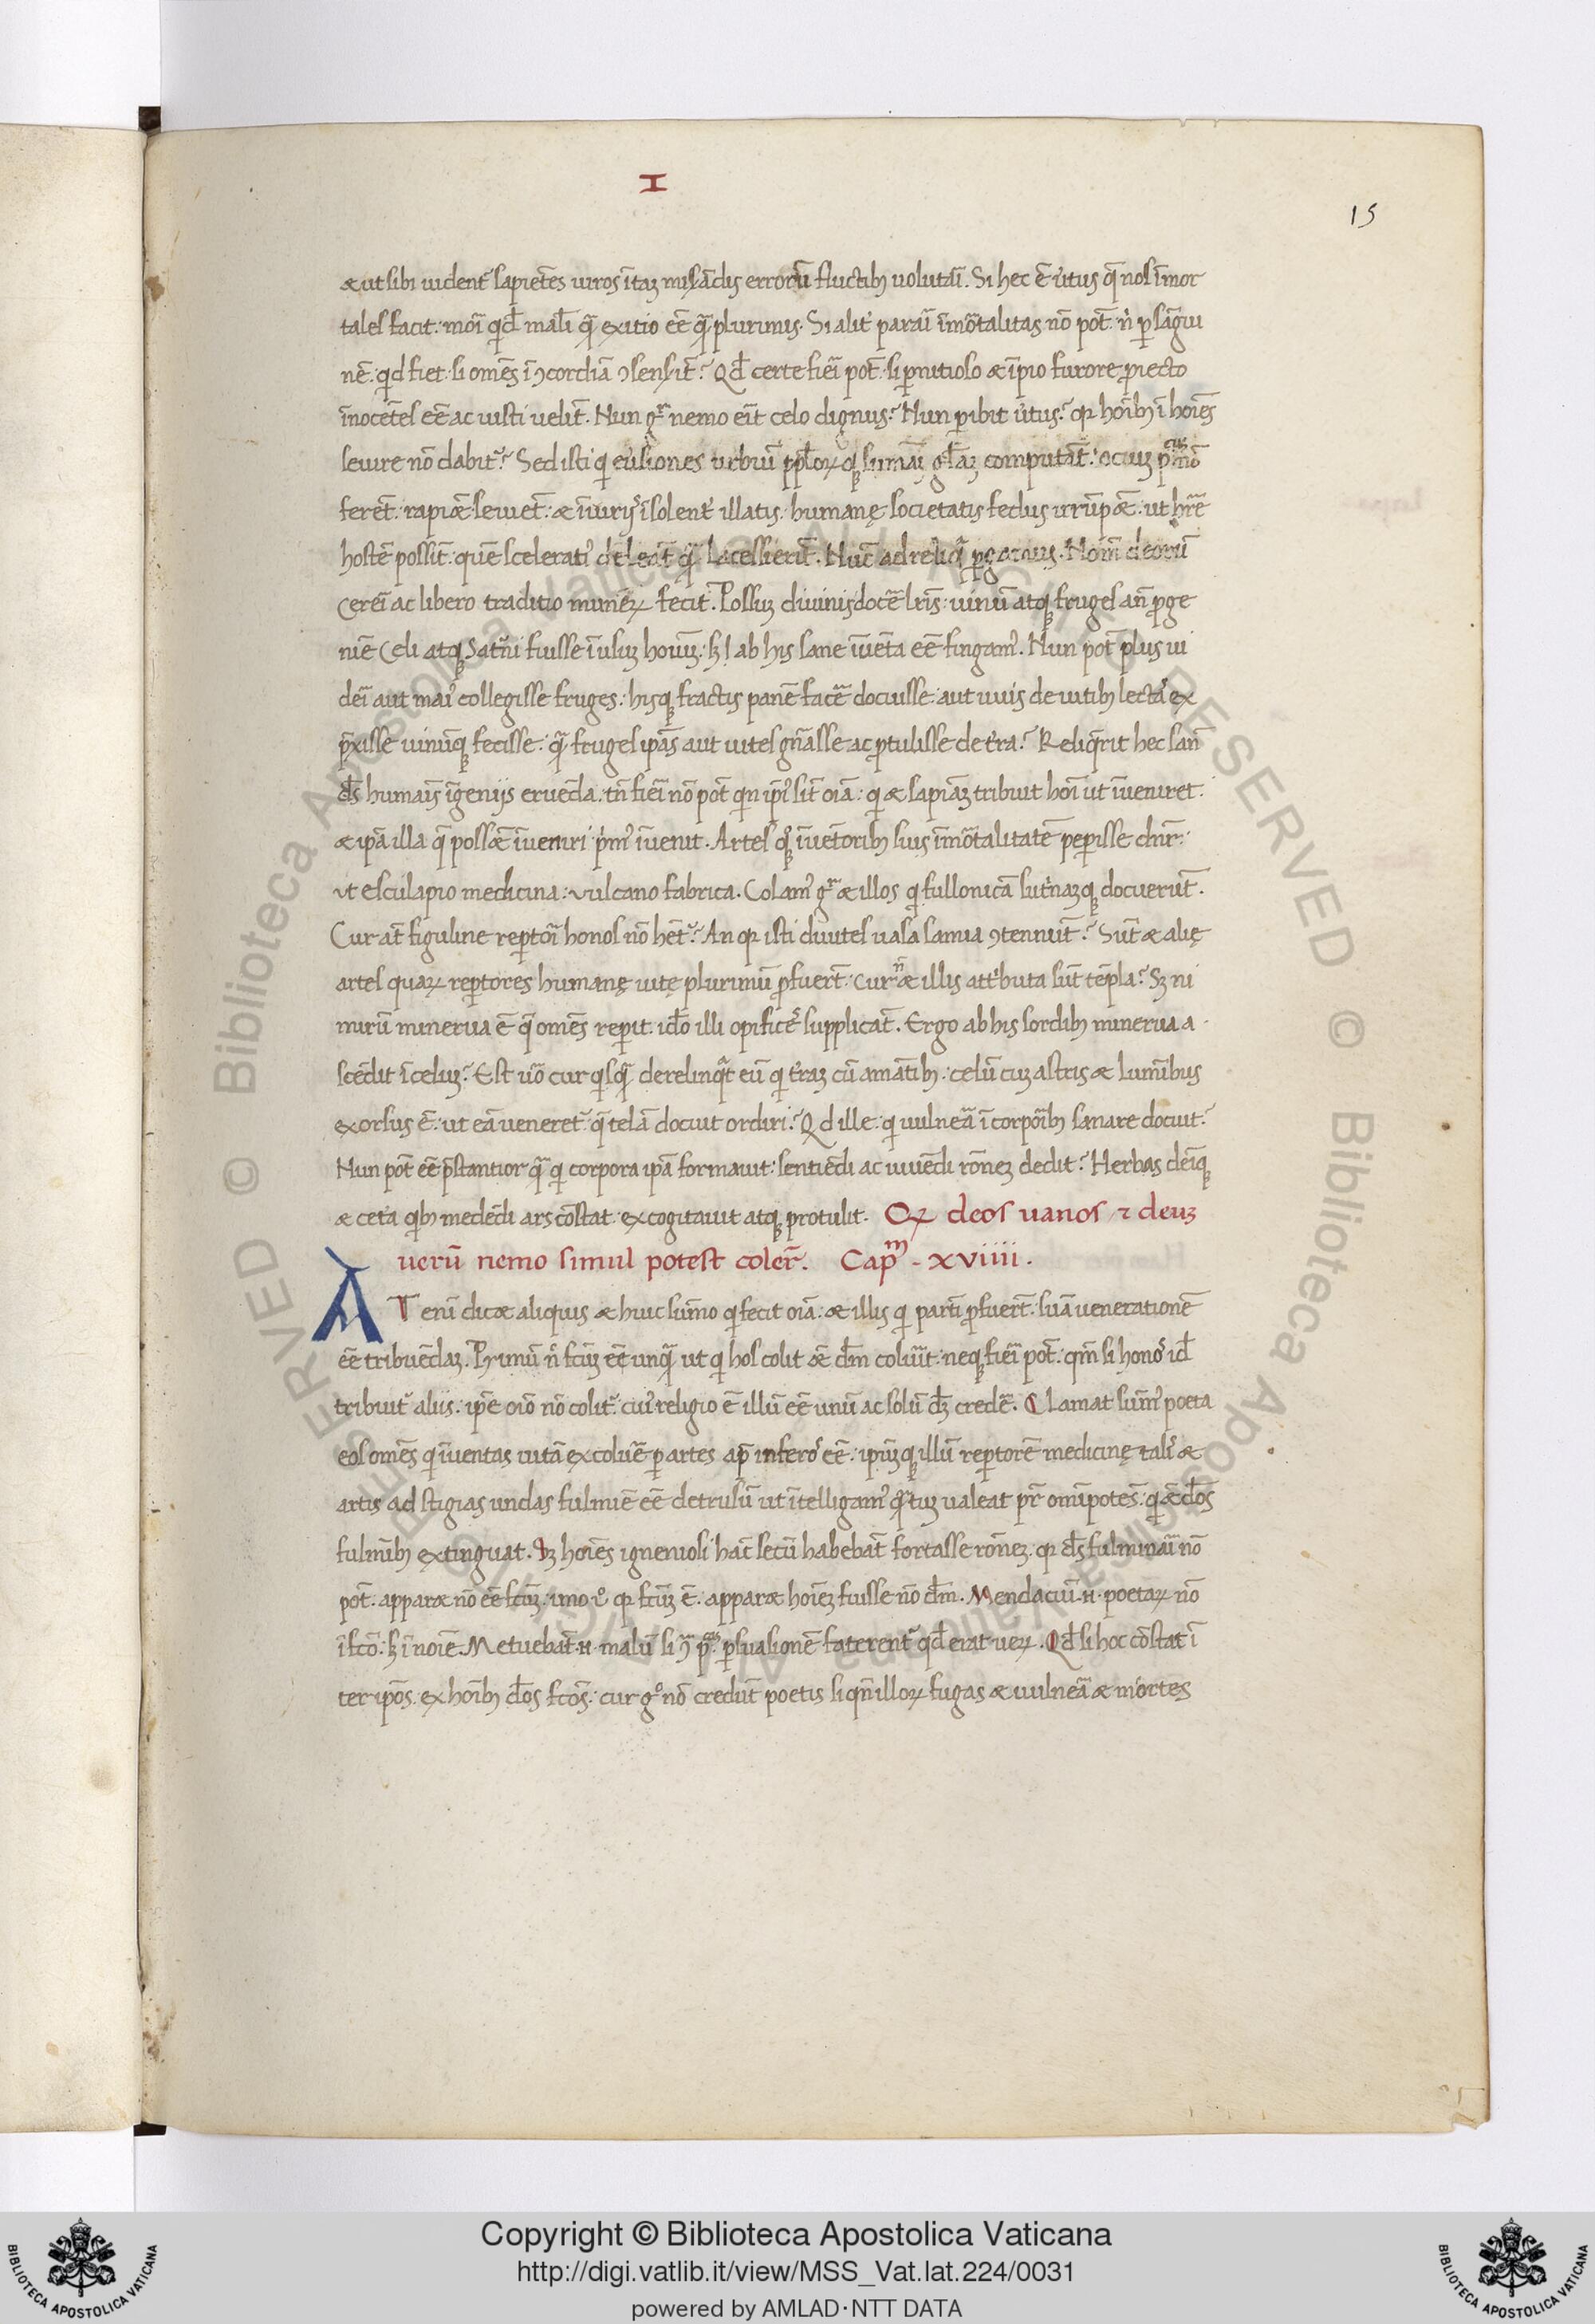 I
15
æ ut sibi uident᷑ sapiētes uiros ītaꝫ misādis errorū fluctibꝫ uolutari. Si hec ē u̓tus q̄ nos īmor
tales facit: mori qd̄ mali q̄ exitio eē q̄ plurimis. Si alit̓ parari īmōtalitas nō pōt n̓ ꝑ sāgui
nē: qd fiet si omēs ī ꝯcordiā ꝯsensit̄? Qd̄ certe fieri pōt si ꝑnitioso æ īpio furore ꝓiecto
īnocētes eē ac iusti uelīt. Nun gͦ nemo eit celo dignus? Nun ꝑibit u̓tus? qꝛ hoībꝫ ī hoīes
seuire nō dabit᷑? Sed isti qi euersiones urbiū ppl̄oꝝ qꝫ sūmaꝫ gl̄iaꝫ computāt: ociuꝫ
ferēt: rapiēt: seuiēt: æ īiurijs īsolent̓ illatis: humanę societatis fedus irrūpēt: ut hr̄e
hostē possīt: quē scelerati̓ deleāt q̄ lacessierīt. Nūc ad reliq̄ ꝑgamus. Nom̄ deorū
Cereri ac libero traditio muneꝝ fecit. Possuꝫ diuinis docēre lr̄is: uinū atqꝫ fruges an̄ ꝓge
niē Celi atqꝫ Saturni fuisse ī usu houīꝫ: sꝫ ab his sane īuēta eē fingam̓. Nun pōt plus ui
deri aut mai̓ collegisse fruges: hisqꝫ fractis panē facē docuisse: aut uuis de uitibꝫ lectis̓ ex
p̄xisse uinūqꝫ fecisse: q̄ fruges ipās aut uites gn̄asse ac ꝓtulisse de t̓ra? Reliq̄rit hec san̄
ds̄ humaīs īgenijs eruēda: tn̄ fieri nō pōt qin ipi̓ sīt oīa: qi æ sapiāꝫ tribuit hoī ut īueniret:
æ ipā illa q̄ possēt īueniri pim̓ īuenit. Artes qꝫ īuētoribꝫ suis īmōtalitatē peperisse dnr̄:
ut esculapio medicina: vulcano fabrica. Colam̓ gͦ æ illos qi fullonicā sut̓naꝫqꝫ docuerūt.
Cur at̄ figuline reptori honos nō hēt᷑? An qꝛ isti diuites uasa samia ꝯtennūt? Sūt æ alię
artes quaꝝ reptores humanę uitę plurimū ꝓfuerūt: Cur n̄ æ illis att̓buta sūt tēpla? Sꝫ ni
mirū minerua ē q̄ omēs repit: idō illi opifices̓ supplicāt. Ergo ab his sordibꝫ minerua a
scēdit ī celuꝫ? Est uo̓ cur qisq̄ derelinqt eū qi t̓raꝫ cū amātibꝫ: celū cuꝫ astris æ lumībus
exorsus ē: ut eā ueneret᷑: q̄ telā docuit ordiri? Qd ille: qi uulnera ī corporibꝫ sanare docuit?
Nun pōt eē p̄stantior q̄ qi corpora ipā formauit: sentiēdi ac uiuēdi rōneꝫ dedit? Herbas deīqꝫ
æ ceta qibꝫ medēdi ars cōstat: excogitauit atqꝫ protulit. Qꝛ deos uanos ⁊ deuꝫ
uerū nemo simul potest coler̄. Capᵐ - xviiii.
AT eni dicæ aliquis æ huic sūmo qi fecit oīa: æ illis qi parti ꝓfuerūt: suā uenerationē
eē tribuēdaꝫ. Primū n̓ fcm̄ eē unq̄ ut qi hos colit æ dm̄ coluīt: neqꝫ fieri pōt: qm̄ si honos̓ id̄
tribuit᷑ aliis: ipē oīo nō colit᷑: cui̓ religio ē illū eē unū ac solū dꝫ credē. Clamat sūm̓ poeta
eos omēs qi īuentas uitā excoluēr ꝑ artes ap̄ inferos̓ eē: ipūꝫqꝫ illū reptorē medicinę talis̓ æ
artis ad stigias undas fulmiē eē detrusū ut ītelligam̓ qtuꝫ ualeat pr̄ omīpotēs: qi æ dōs
fulmībꝫ extinguat. Sꝫ hoīes igneniosi hāc secū habebāt fortasse rōneꝫ: qꝛ ds̄ fulminari nō
pōt: apparæ nō eē fcm̄: imo u̓o qꝛ fcm̄ ē: apparæ hoīeꝫ fuisse nō dm̄. Mendaciū .n. poetaꝝ nō
ī fcō: sꝫ ī noīe. Metuebāt .n. malū si ꝑsuasionē faterent᷑ qd̄ erat ueꝝ. Qd̄ si hoc cōstat ī
ter ipōs: ex hoībꝫ dōs fcōs: cur gͦ nō credūt poetis si qn̄ illoꝝ fugas æ uulnera æ mortes
Copyright © Biblioteca Apostolica Vaticana
http://digi.vatlib.it/view/MSS_Vat.lat.224/0031
powered by AMLAD·NTT DATA